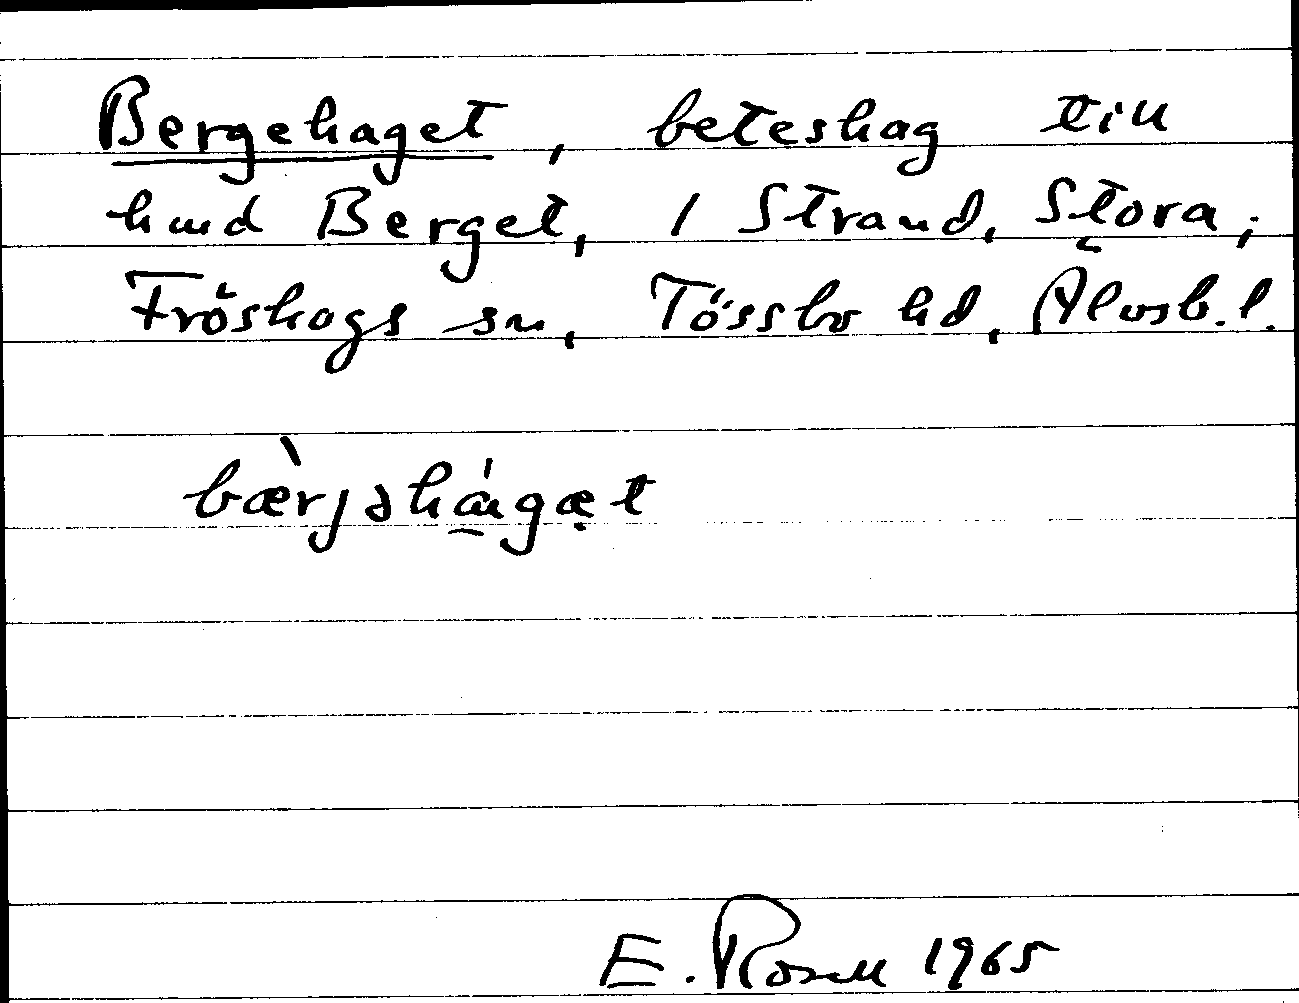 Bergehaget, beteshag till
hmd Berget, 1 Strand, Stora;
Fröskogs sn, Tössbo hd, Älvsb. l.
bæ̀rjəhágæt
E. Rosell 1965